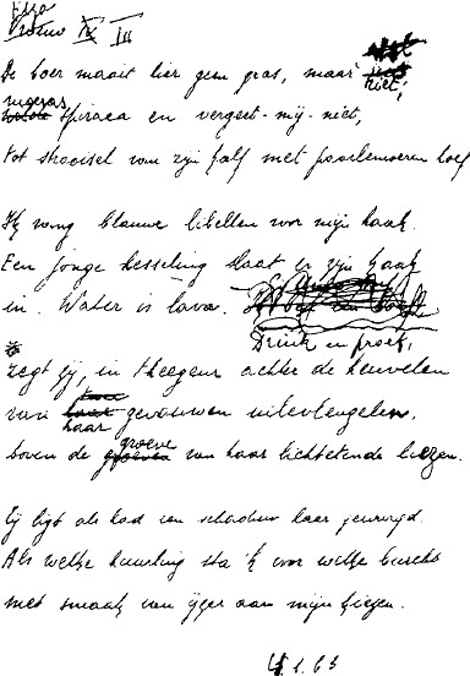 Vrouw IV III
De boer maait hier geen gras, maar riet,
spiraea en vergeet-mij-niet,
tot strooisel voor zijn kalf met paarlemoeren hoef
Ik vang blauwe libellen voor mijn haak.
Een jonge hesseling slaat er zijn kaak
in. Water is lava.
Drink en proef,
zegt zij, in theegeur achter de heuvelen
van haar gevouwen uilevleugelen,
boven de groeve van haar lichtetende liezen.
Zij ligt als had een schaduw haar gewurgd.
Als welke huurling sta 'k voor welke burcht
met smaak van ijzer aan mijn kiezen.
1.63